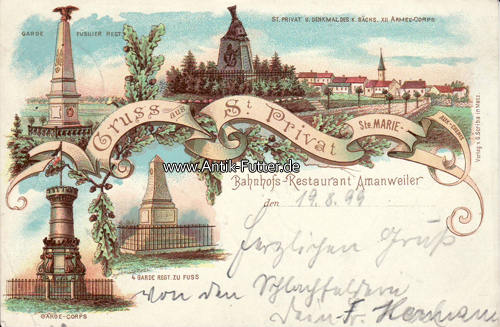 GARDE FUSILIER REGT.
ST. PRIVAT U. DENKMAL DES K. SÄCHS. XII ARMEE-CORPS
Gruss aus St Privat
Ste. MARIE-
www.Antik-Futter.de
Bahnhofs-Restaurant Amanweiler
den 19.8.99
4 GARDE REGT. ZU FUSS
GARDE-CORPS
Herzlichen Gruß
von den Schlachtfeldern
Dein Fr. Hermann